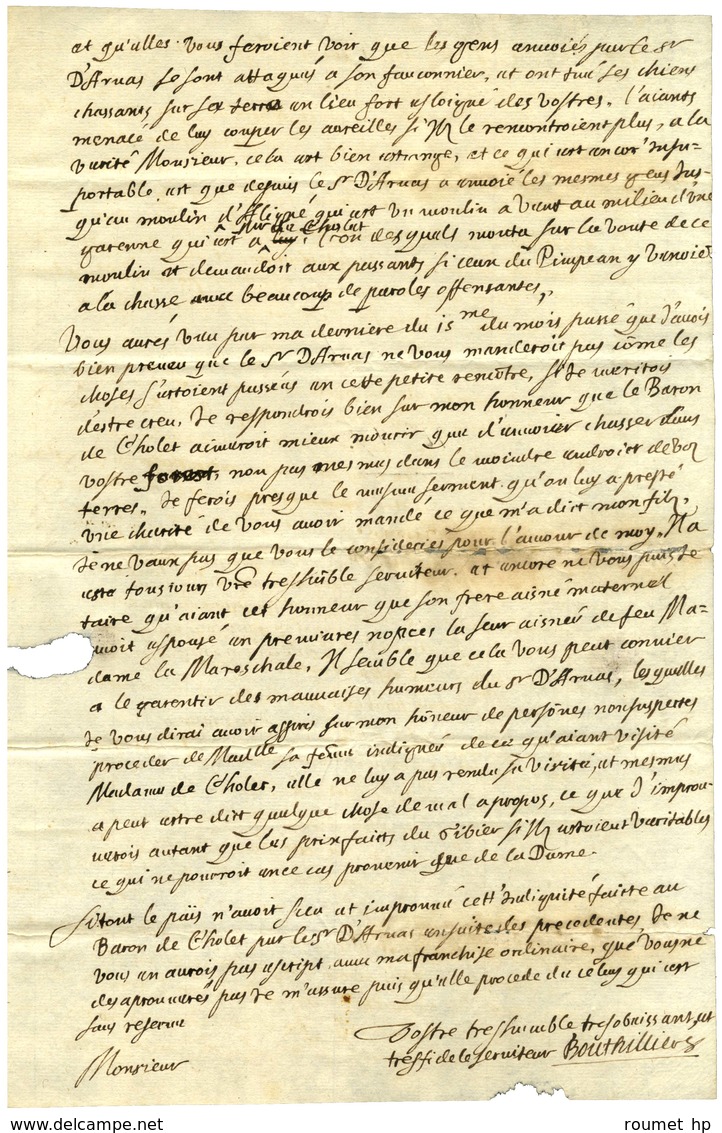 et qu'elles vous feroient voir que les gens envoiés par le Sr
D'Aruas se sont attaqués a son fauconnier, et ont tué ses chiens
chassants sur ses terres en lieu fort esloigné des vostres, l'aiants
menacé de luy couper les aureilles si Il le rencontroient plus, a la
verité Monsieur, cela est bien estrange, et ce qui est encor' insu-
portable est que depuis le Sr D'Aruas a envoié les mesmes gens Jus-
qu'au moulin d'Aligné qui est un moulin a vent au milieu d'une
garenne qui est a sieur de Cholet l'on desquels monta sur la voute de ce
moulin et demandoit aux passants si ceux du Pimpean y venoient
a la chasse avec beaucoup de paroles offensantes,
Vous aurés veu par ma derniere du 15me du mois passé que J'avois
bien preveu que le Sr D'Aruas ne vous manderoit pas come les
choses s'estoient passées en cette petite rencontre, si Je meritois
d'estre creu, Je respondrois bien sur mon honneur que le Baron
de Cholet aimeroit mieux mourir que d'envoier chasser dans
vostre forest, non pas mesmes dans le moindre endroict de vos
terres. Je ferois presque le mesme serment qu'on luy a presté
une charité de vous avoir mandé ce que m'a dict mon filz,
Je ne veux pas que vous le consideries pour l'amour de moy, Il a
esté tousiours vre treshumble serviteur, et encore ne vous puis Je
taire qu'aiant cet honneur que son frere aisné maternel
avoit espousé en premieres nopces la seur aisnée de feu Ma-
dame la Mareschale, Il semble que cela vous peut convier
a le garentir des mauvaises humeurs du Sr D'Aruas, lesquelles
Je vous dirai avoir appris sur mon honeur de persones non suspectes
proceder de Madlle sa feme indignée de ce qu'aiant visité
Madame de Cholet, elle ne luy a pas rendu sa visite, et mesmes
a peut estre dict quelque chose de mal a propos, ce que J'improu-
verois autant que les prixfaicts du Gibier si Ilz estoient veritables
ce qui ne pourroit en ce cas provenir que de la Dame.
Si tout le païs n'avoit sceu et improuvé cett' Indignité faicte au
Baron de Cholet par le Sr D'Aruas ensuite des precedentes Je ne
vous en aurois pas escript avec ma franchise ordinaire, que vous ne
desaprouverés pas Je m'assure puis qu'elle procede de celuy qui est
sans reserve
Vostre treshumble tresobeissant, et
tresfidele serviteur Bouthillier
Monsieur
© roumet hp